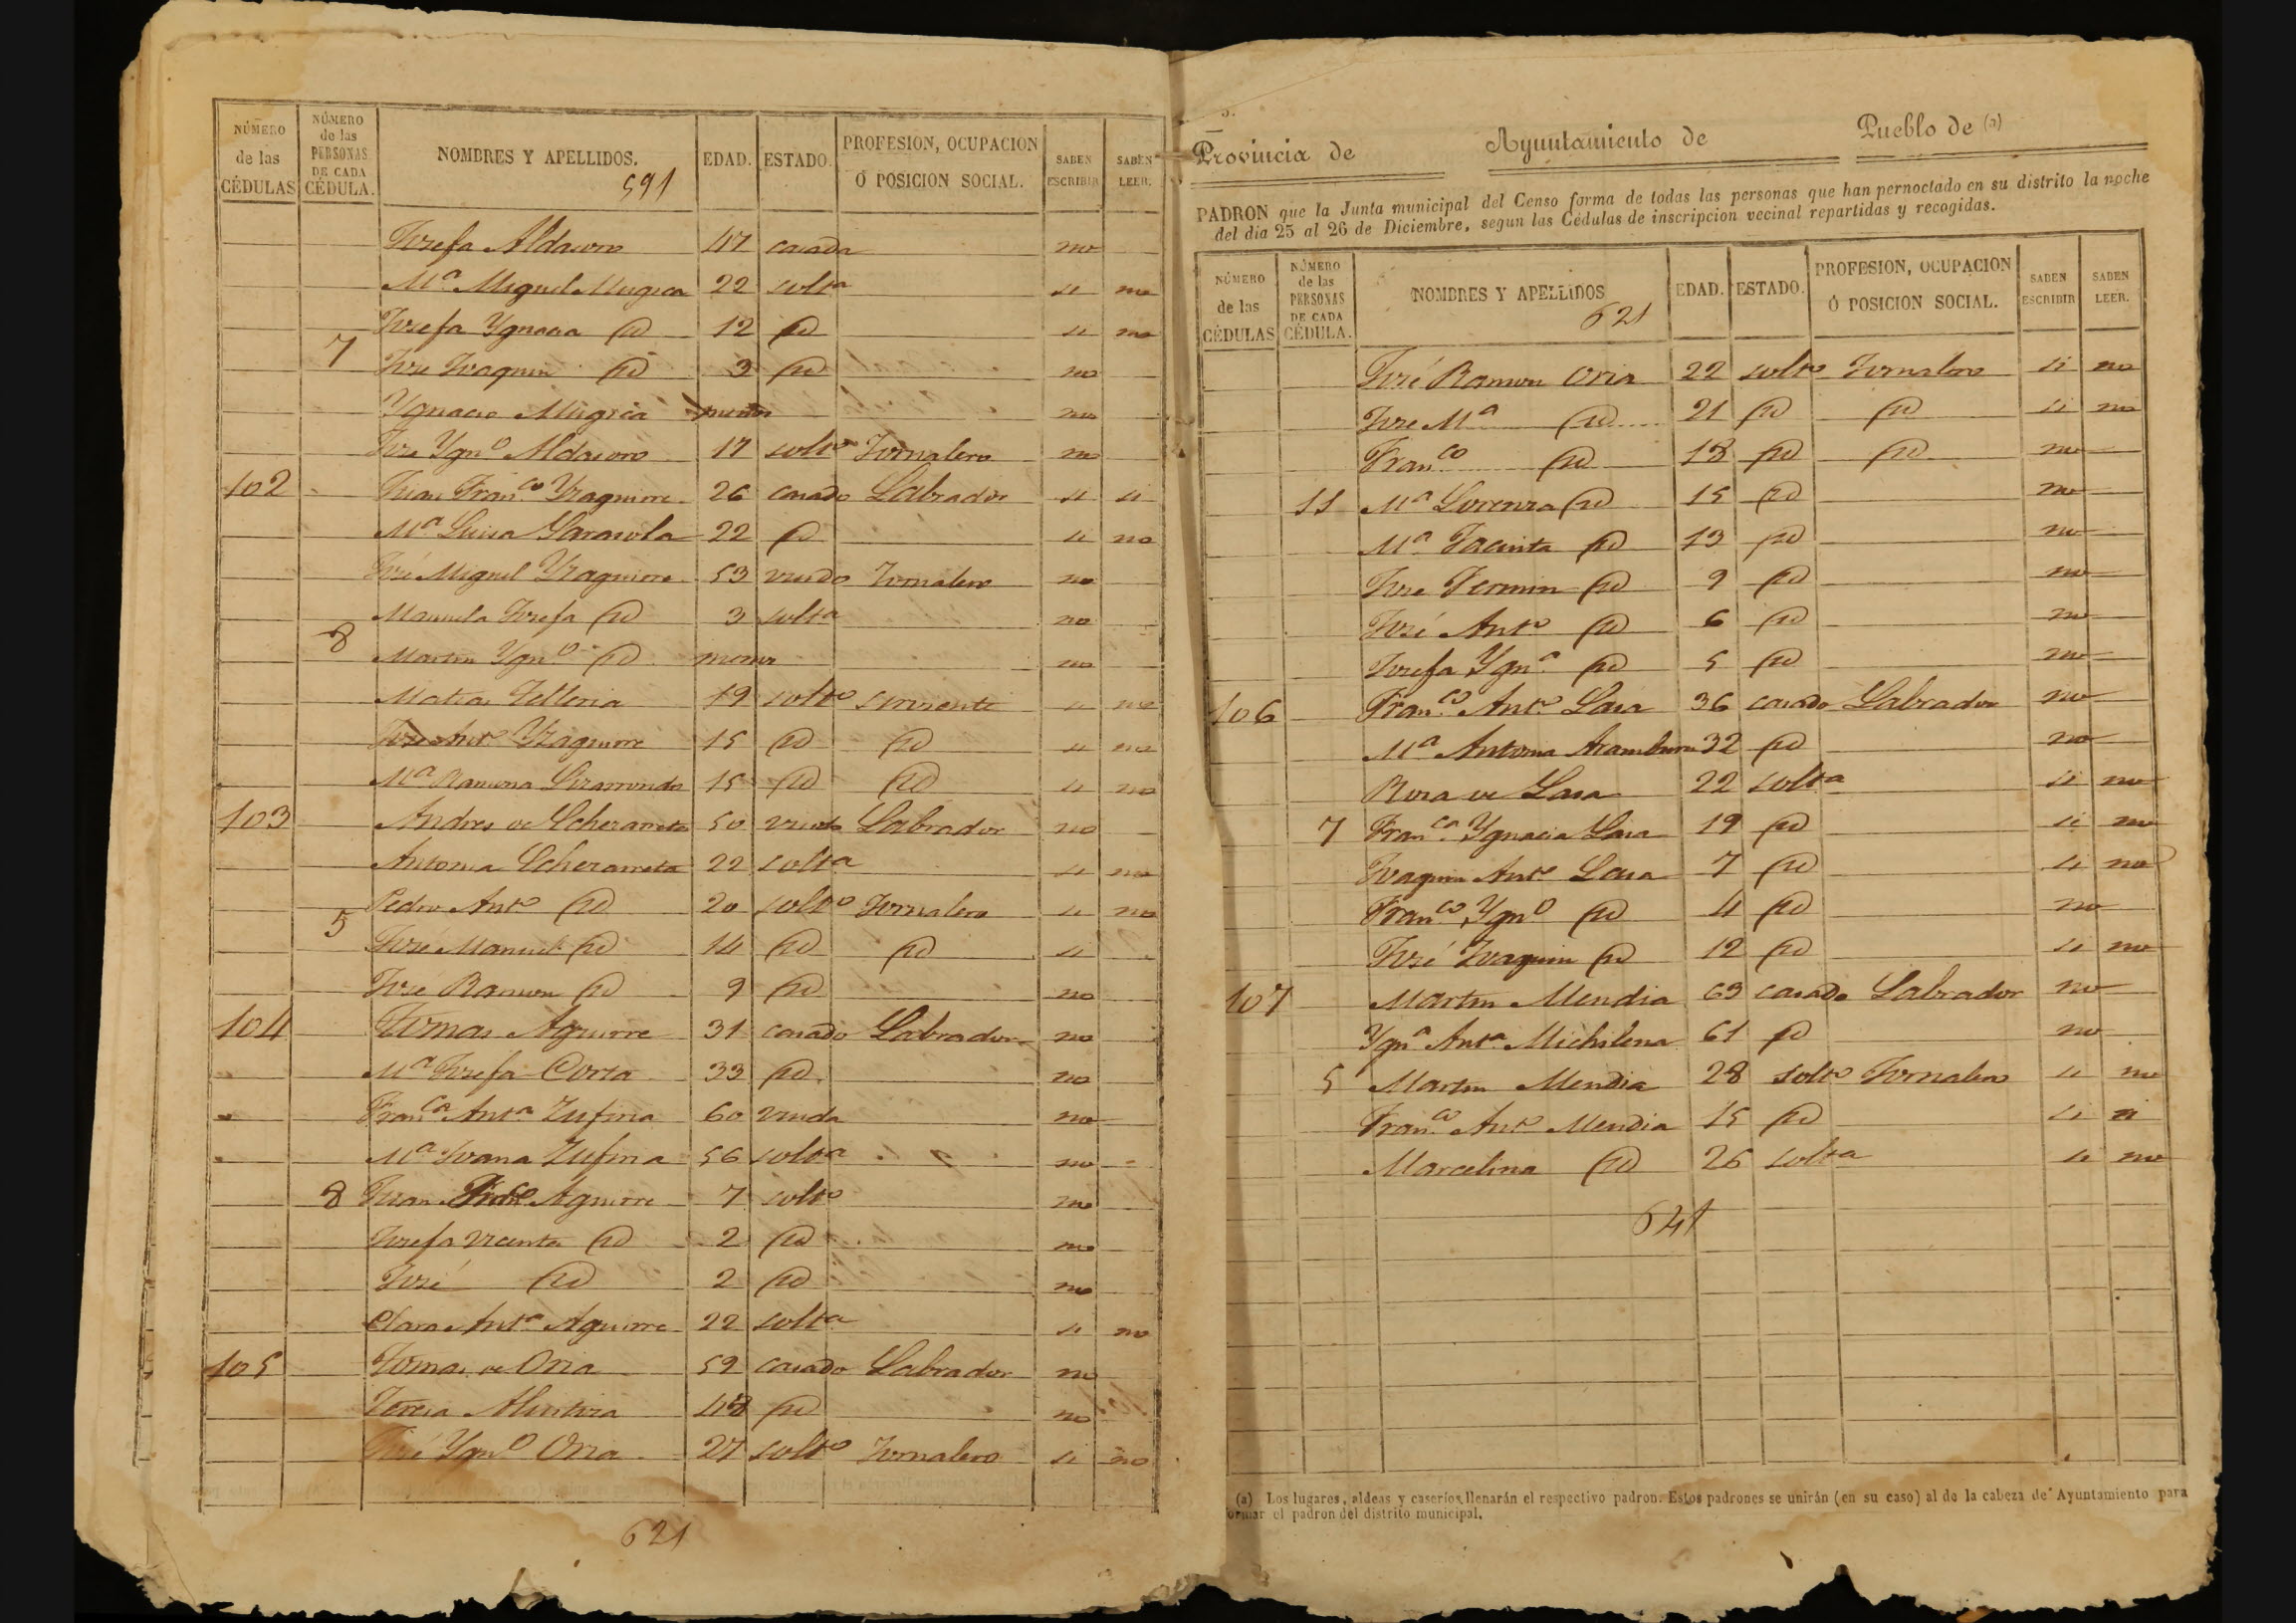 NÚMERO de las CÉDULAS NÚMERO de las PERSONAS DE CADA CÉDULA. NOMBRES Y APELLIDOS. EDAD. ESTADO. PROFESION, OCUPACION Ó POSICION SOCIAL. SABEN ESCRIBIR SABEN LEER.
591
Josefa Aldasoro 47 casada no
Mª Miguel Mugica 22 soltª si no
Josefa Ygnacia id 12 id si no
7
Jose Joaquin id 3 id no
Ygnacio Mugica no
Jose Ygnº Aldasoro 17 soltº Jornalero no
102 Juan Franco Yzaguirre 26 casado Labrador si si
Mª Luisa Garasola 22 id si no
José Miguel Yzaguirre 53 viudo Jornalero no
Manuela Josefa id 3 soltª no
8
Martin Ygnº id menor no
Matias Telleria 19 soltº sirviente si no
Jose Antº Yzaguirre 15 id id si no
Mª Ramona Lizarrondo 15 id id si no
103 Andres de Echezarreta 50 viudo Labrador no
Antonia Echezarreta 22 soltª si no
Pedro Antº id 20 soltº Jornalero si no
5
José Manuel id 14 id id si
José Ramon id 9 id no
104 Tomas Aguirre 31 casado Labrador no
Mª Josefa Corta 33 id no
Franca Antª Zufiria 60 viuda no
Mª Juana Zufiria 56 soltª no
8 Juan Aguirre 7 soltº no
Josefa Vicenta id 2 id no
José id 2 id no
Clara Antª Aguirre 22 soltª si no
105 Tomas de Oria 59 casado Labrador no
Teresa 48 id no
José Ygnº Oria 27 soltº Jornalero si no
621
Provincia de Ayuntamiento de Pueblo de (a)
PADRON que la Junta municipal del Censo forma de todas las personas que han pernoctado en su distrito la noche
del dia 25 al 26 de Diciembre, segun las Cédulas de inscripcion vecinal repartidas y recogidas.
NÚMERO de las CÉDULAS NÚMERO de las PERSONAS DE CADA CÉDULA. NOMBRES Y APELLIDOS EDAD. ESTADO. PROFESION, OCUPACION Ó POSICION SOCIAL. SABEN ESCRIBIR SABEN LEER.
621
José Ramon Oria 22 soltº Jornalero si no
Jose Mª id 21 id id si no
Franco id 18 id id no
11 Mª Lorenza id 15 id no
Mª Jacinta id 13 id no
Jose Fermin id 9 id no
José Antº id 6 id no
Josefa Ygnª id 5 id no
106 Franco Antº Lasa 36 casado Labrador no
Mª Antonia Aramburu 32 id no
Rosa de Lasa 22 soltª si no
7 Franca Ygnacia Lasa 19 id si no
Joaquin Antº Lasa 7 id si no
Franco Ygnº id 4 id no
José Joaquin id 12 id si no
107 Martin Mendia 63 casado Labrador no
Ygnª Antª Michelena 61 id no
5 Martin Mendia 28 soltº Jornalero si no
Franco Antº Mendia 15 id si si
Marcelina id 26 soltª si no
641
(a) Los lugares, aldeas y caseríos llenarán el respectivo padron. Estos padrones se unirán (en su caso) al de la cabeza de Ayuntamiento para
formar el padron del distrito municipal.